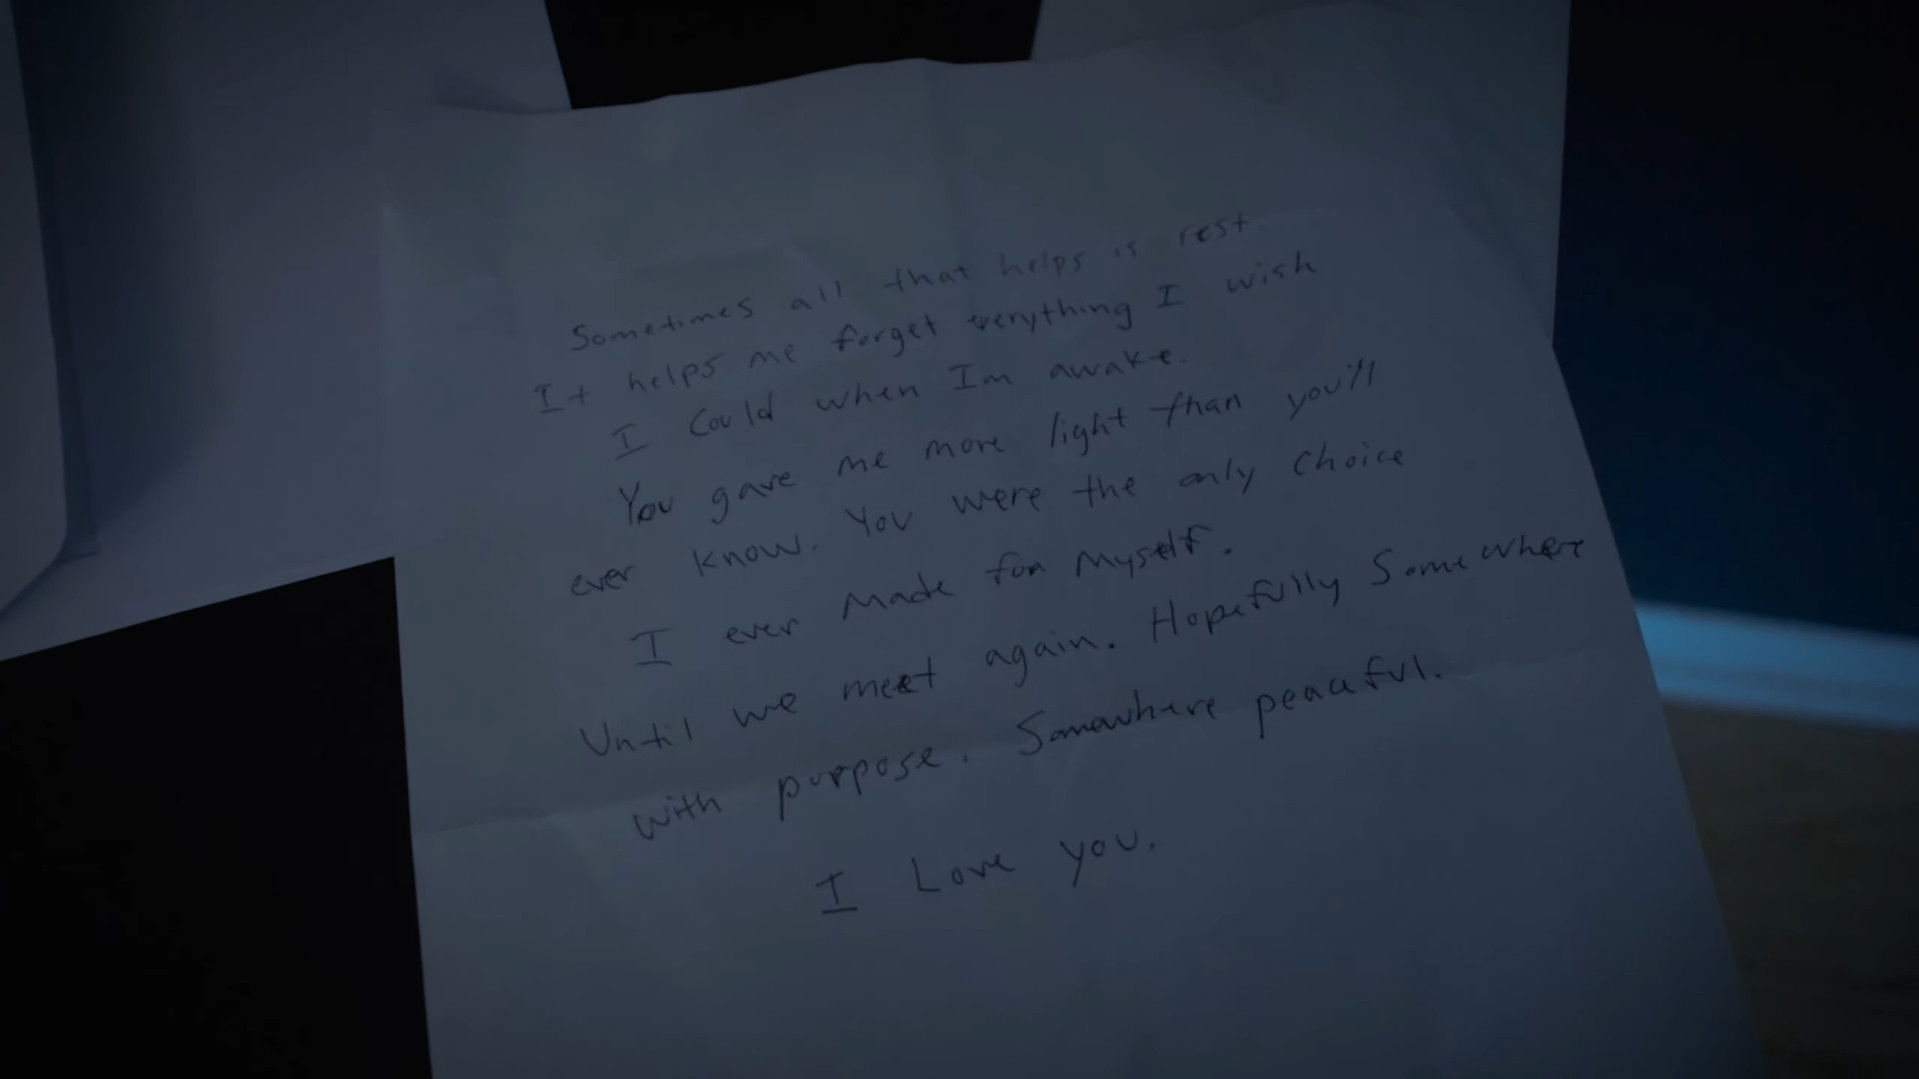 Sometimes all that helps is rest.
It helps me forget everything I wish
I could when Im awake.
You gave me more light than you'll
ever know. You were the only choice
I ever made for myself.
Until we meet again. Hopefully Somewhere
with purpose. Somewhere peaceful.
I Love you.